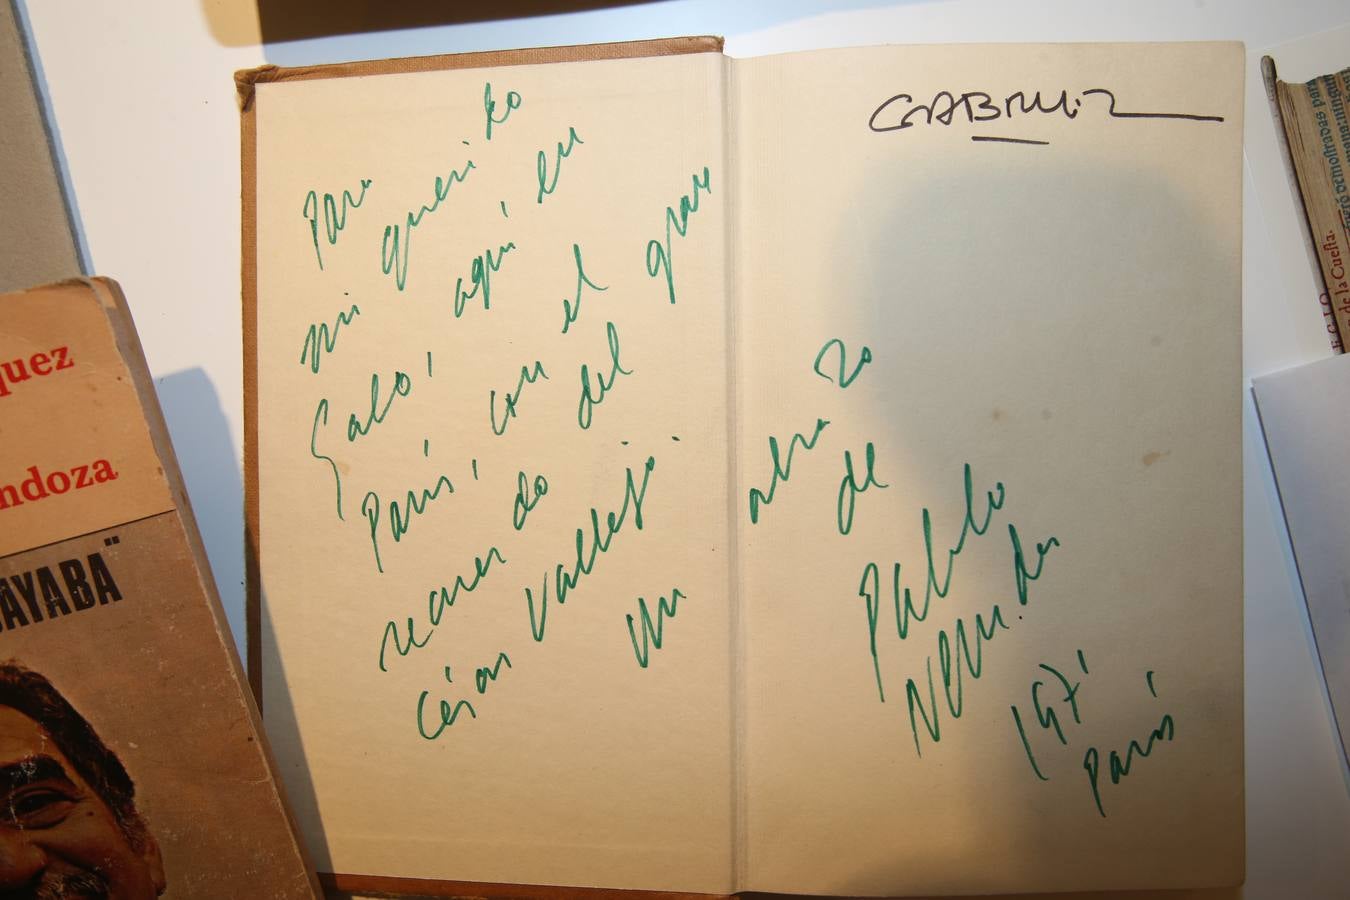 Para
mi querido
Galo, aquí en
París, con el gran
recuerdo del
César Vallejo.
Un
abrazo
de
Pablo
Neruda
197
París
quez
ndoza
AYABA"
de la Cuesta.